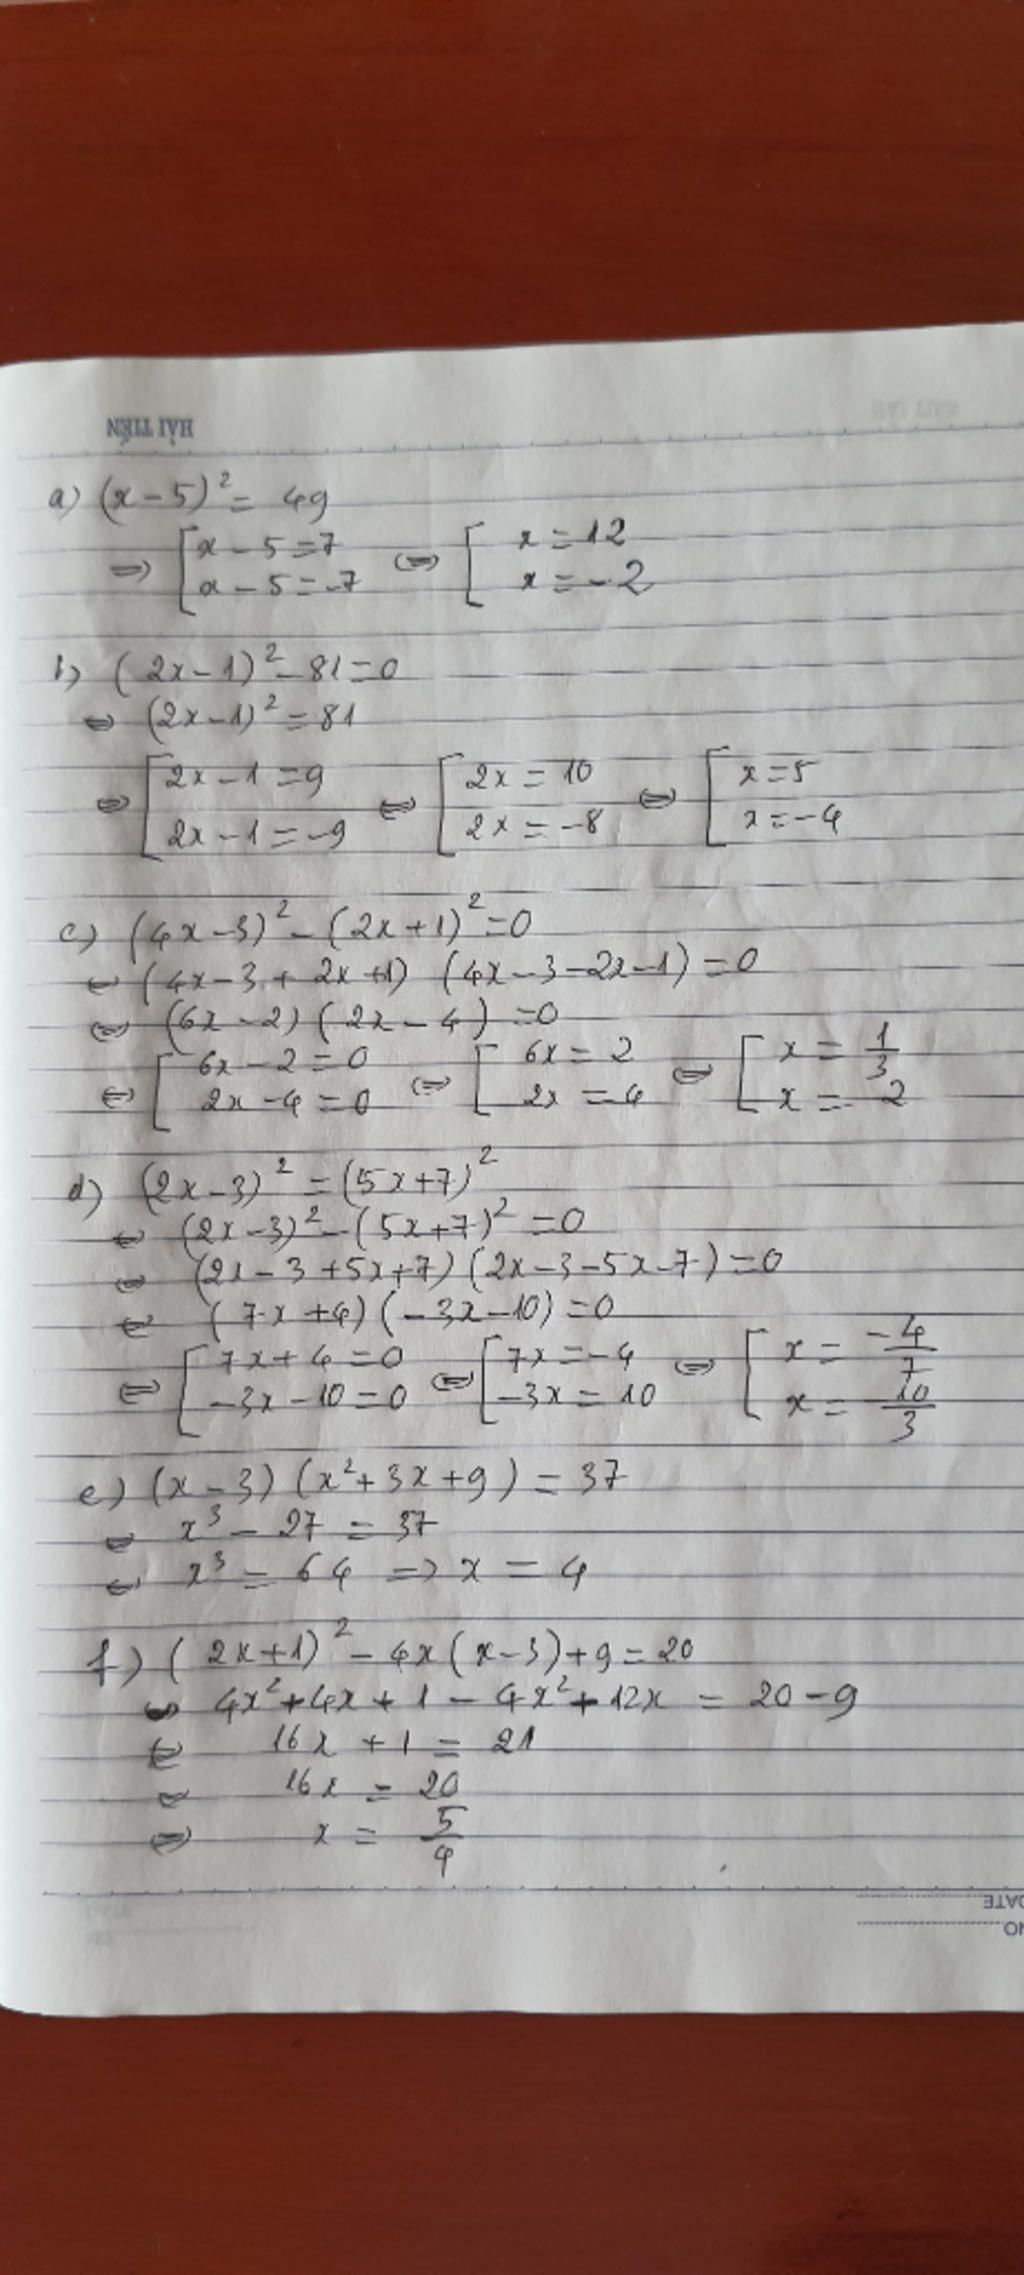 HẢI TIẾN
a) (x-5)² = 49
=> [ x-5=7 <=> [ x=12
x-5=-7 x=-2
b) (2x-1)²-81=0
<=> (2x-1)²=81
<=> [ 2x-1=9 <=> [ 2x=10 <=> [ x=5
2x-1=-9 2x=-8 x=-4
c) (4x-3)²-(2x+1)²=0
<=> (4x-3+2x+1) (4x-3-2x-1)=0
<=> (6x-2)(2x-4)=0
<=> [ 6x-2=0 <=> [ 6x=2 <=> [ x=1/3
2x-4=0 2x=4 x=2
d) (2x-3)²=(5x+7)²
<=> (2x-3)²-(5x+7)²=0
<=> (2x-3+5x+7)(2x-3-5x-7)=0
<=> (7x+4)(-3x-10)=0
<=> [ 7x+4=0 <=> [ 7x=-4 <=> [ x=-4/7
-3x-10=0 -3x=10 x=-10/3
e) (x-3)(x²+3x+9)=37
<=> x³-27=37
<=> x³=64 => x=4
f) (2x+1)²-4x(x-3)+9=20
<=> 4x²+4x+1-4x²+12x = 20-9
<=> 16x+1=21
<=> 16x=20
<=> x=5/4
DATE
NO